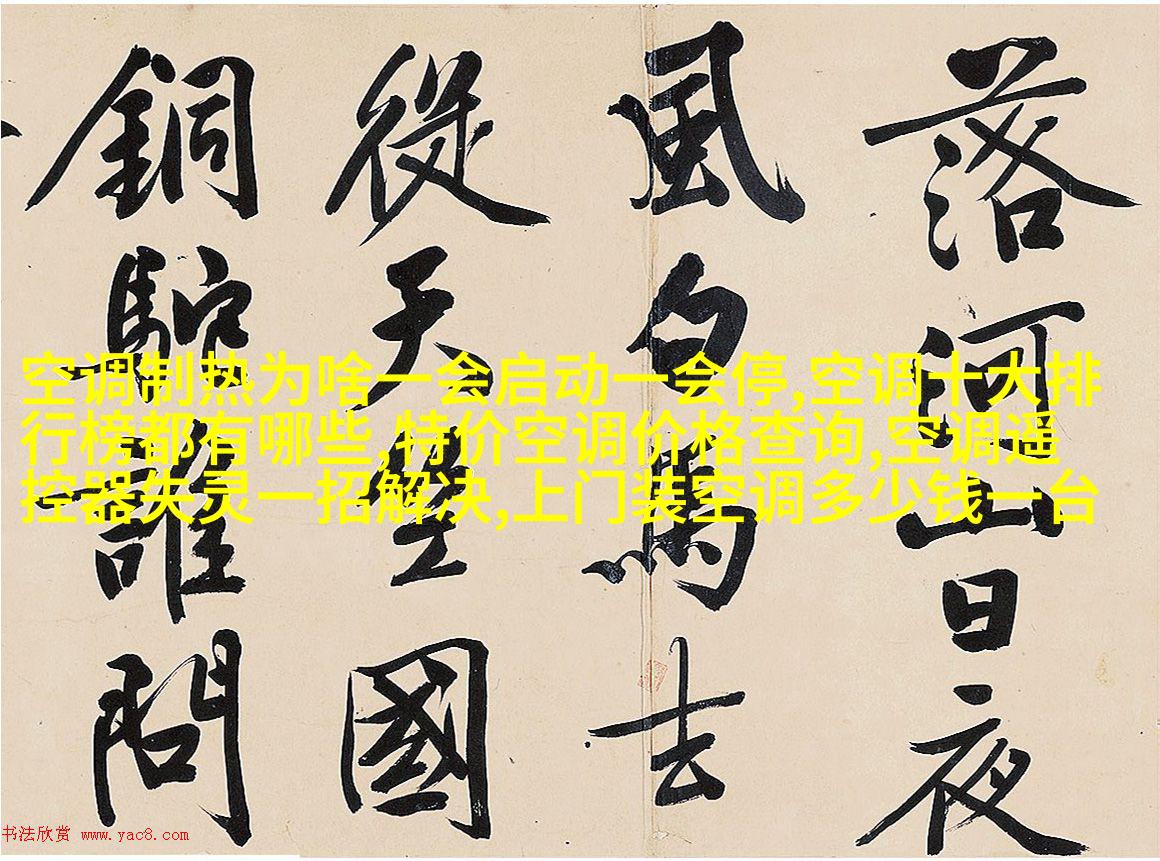 落河山日夜
風白馬去
從天竺國
銅駝誰問
空调制热为啥一会启动一会停,空调十大排
行榜都有哪些,特价空调价格查询,空调遥
控器失灵一招解决,上门装空调多少钱一台
书法欣赏 www.yac8.com